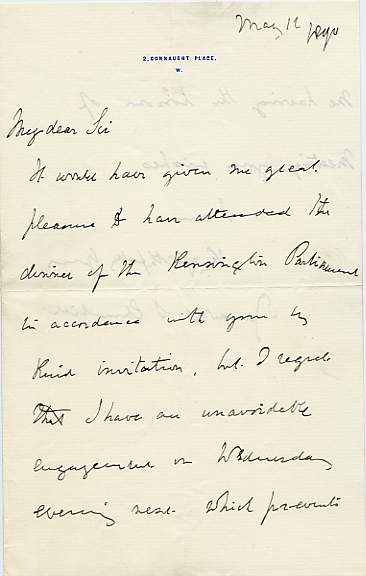 May 12 1890
2, CONNAUGHT PLACE.
W.
My dear Sir
It would have given me great
pleasure to have attended the
dinner of the Kensington Parliament
in accordance with your
kind invitation, but I regret
that I have an unavoidable
engagement on Wednesday
evening next which prevents